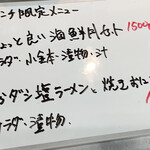 ンチ限定メニュー
っと良い海鮮丼セット 1500
ダ、小金本・漬物・汁
ダシ塩ラーメンと焼きおに
サラダ・漬物.